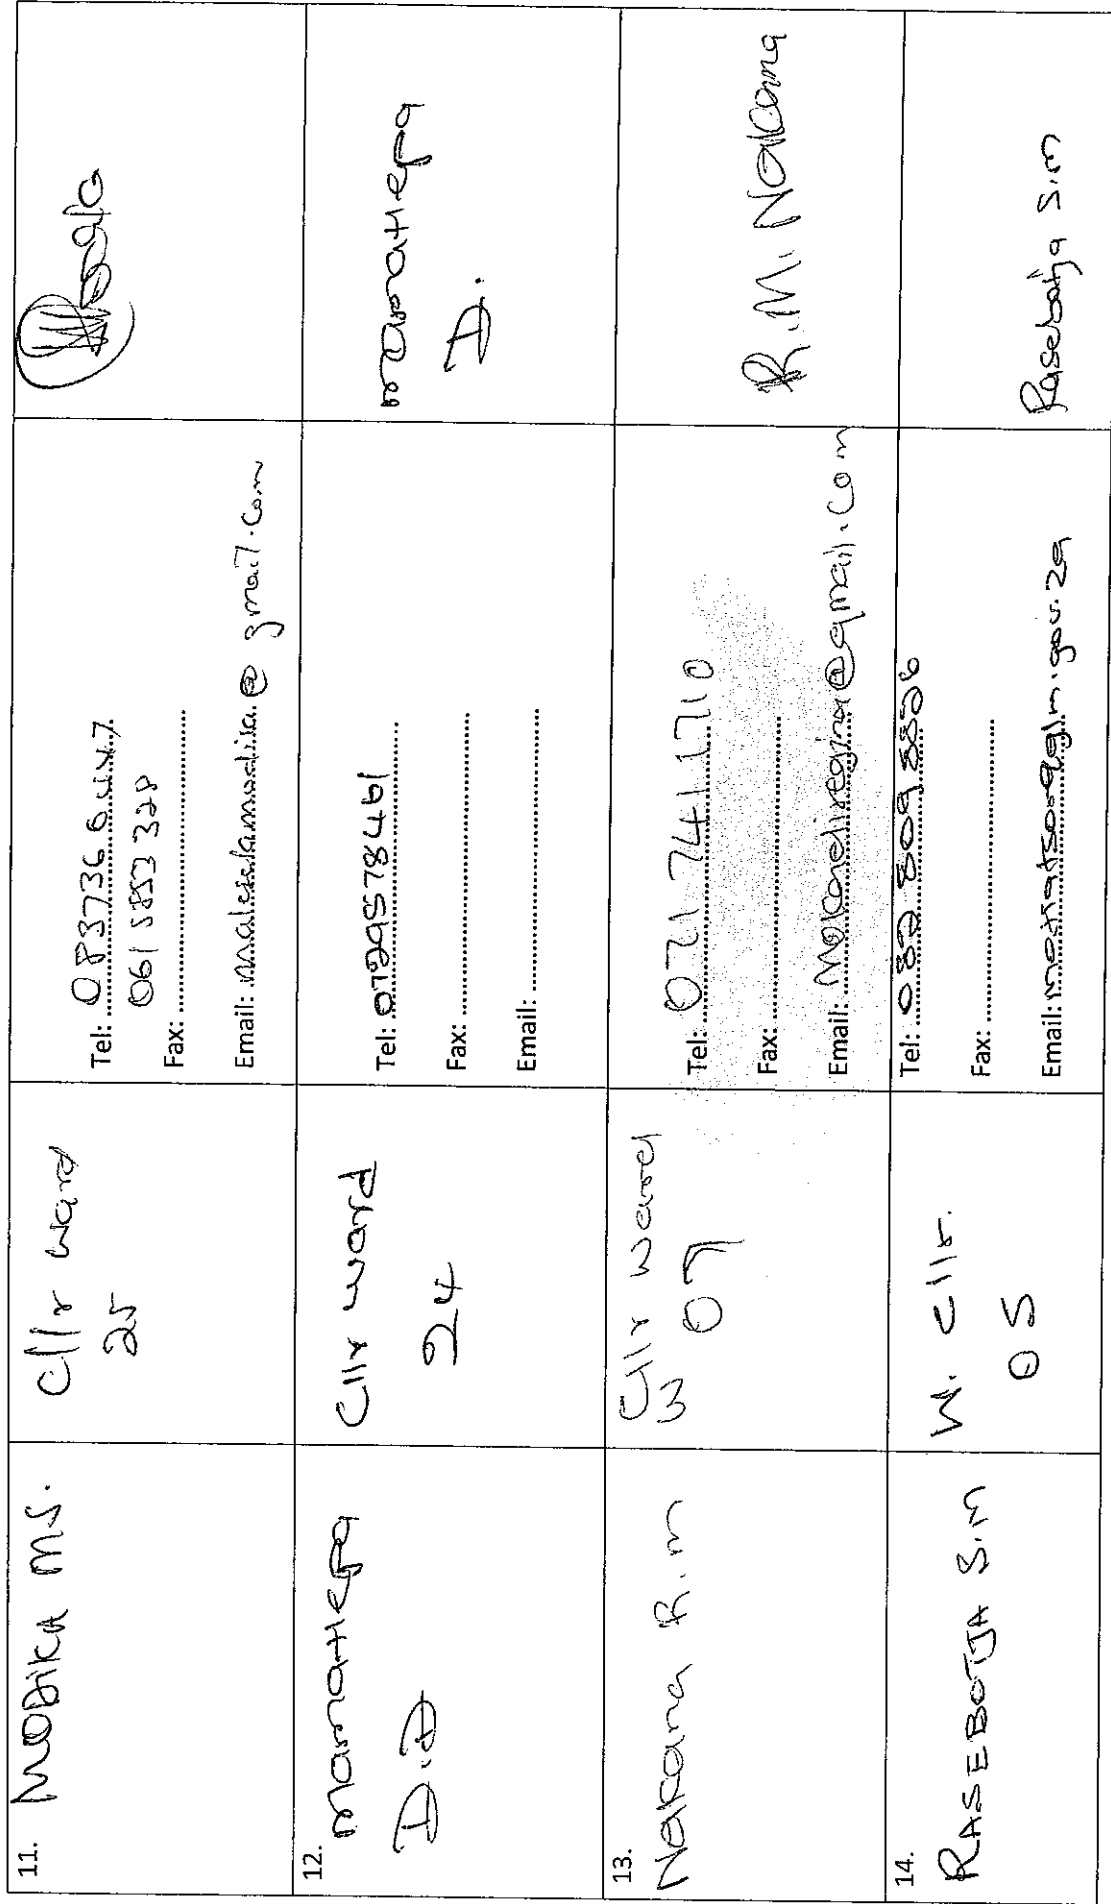 11. MODIKA MS.
Cllr ward
25
Tel: 083736
061 5853 328
Fax:
Email: @ gmail.com
12. mamatlepa
D.D
Cllr ward
24
Tel: 0729578461
Fax:
Email:
mamatlepa
D.
13. Nakana R.m
Cllr ward
07
Tel: 071 741 1710
Fax:
Email: @gmail.com
R.M. Nakana
14. RASEBOTJA S.M
W. Cllr.
05
Tel: 082 809 8826
Fax:
Email:
Rasebotja S.m